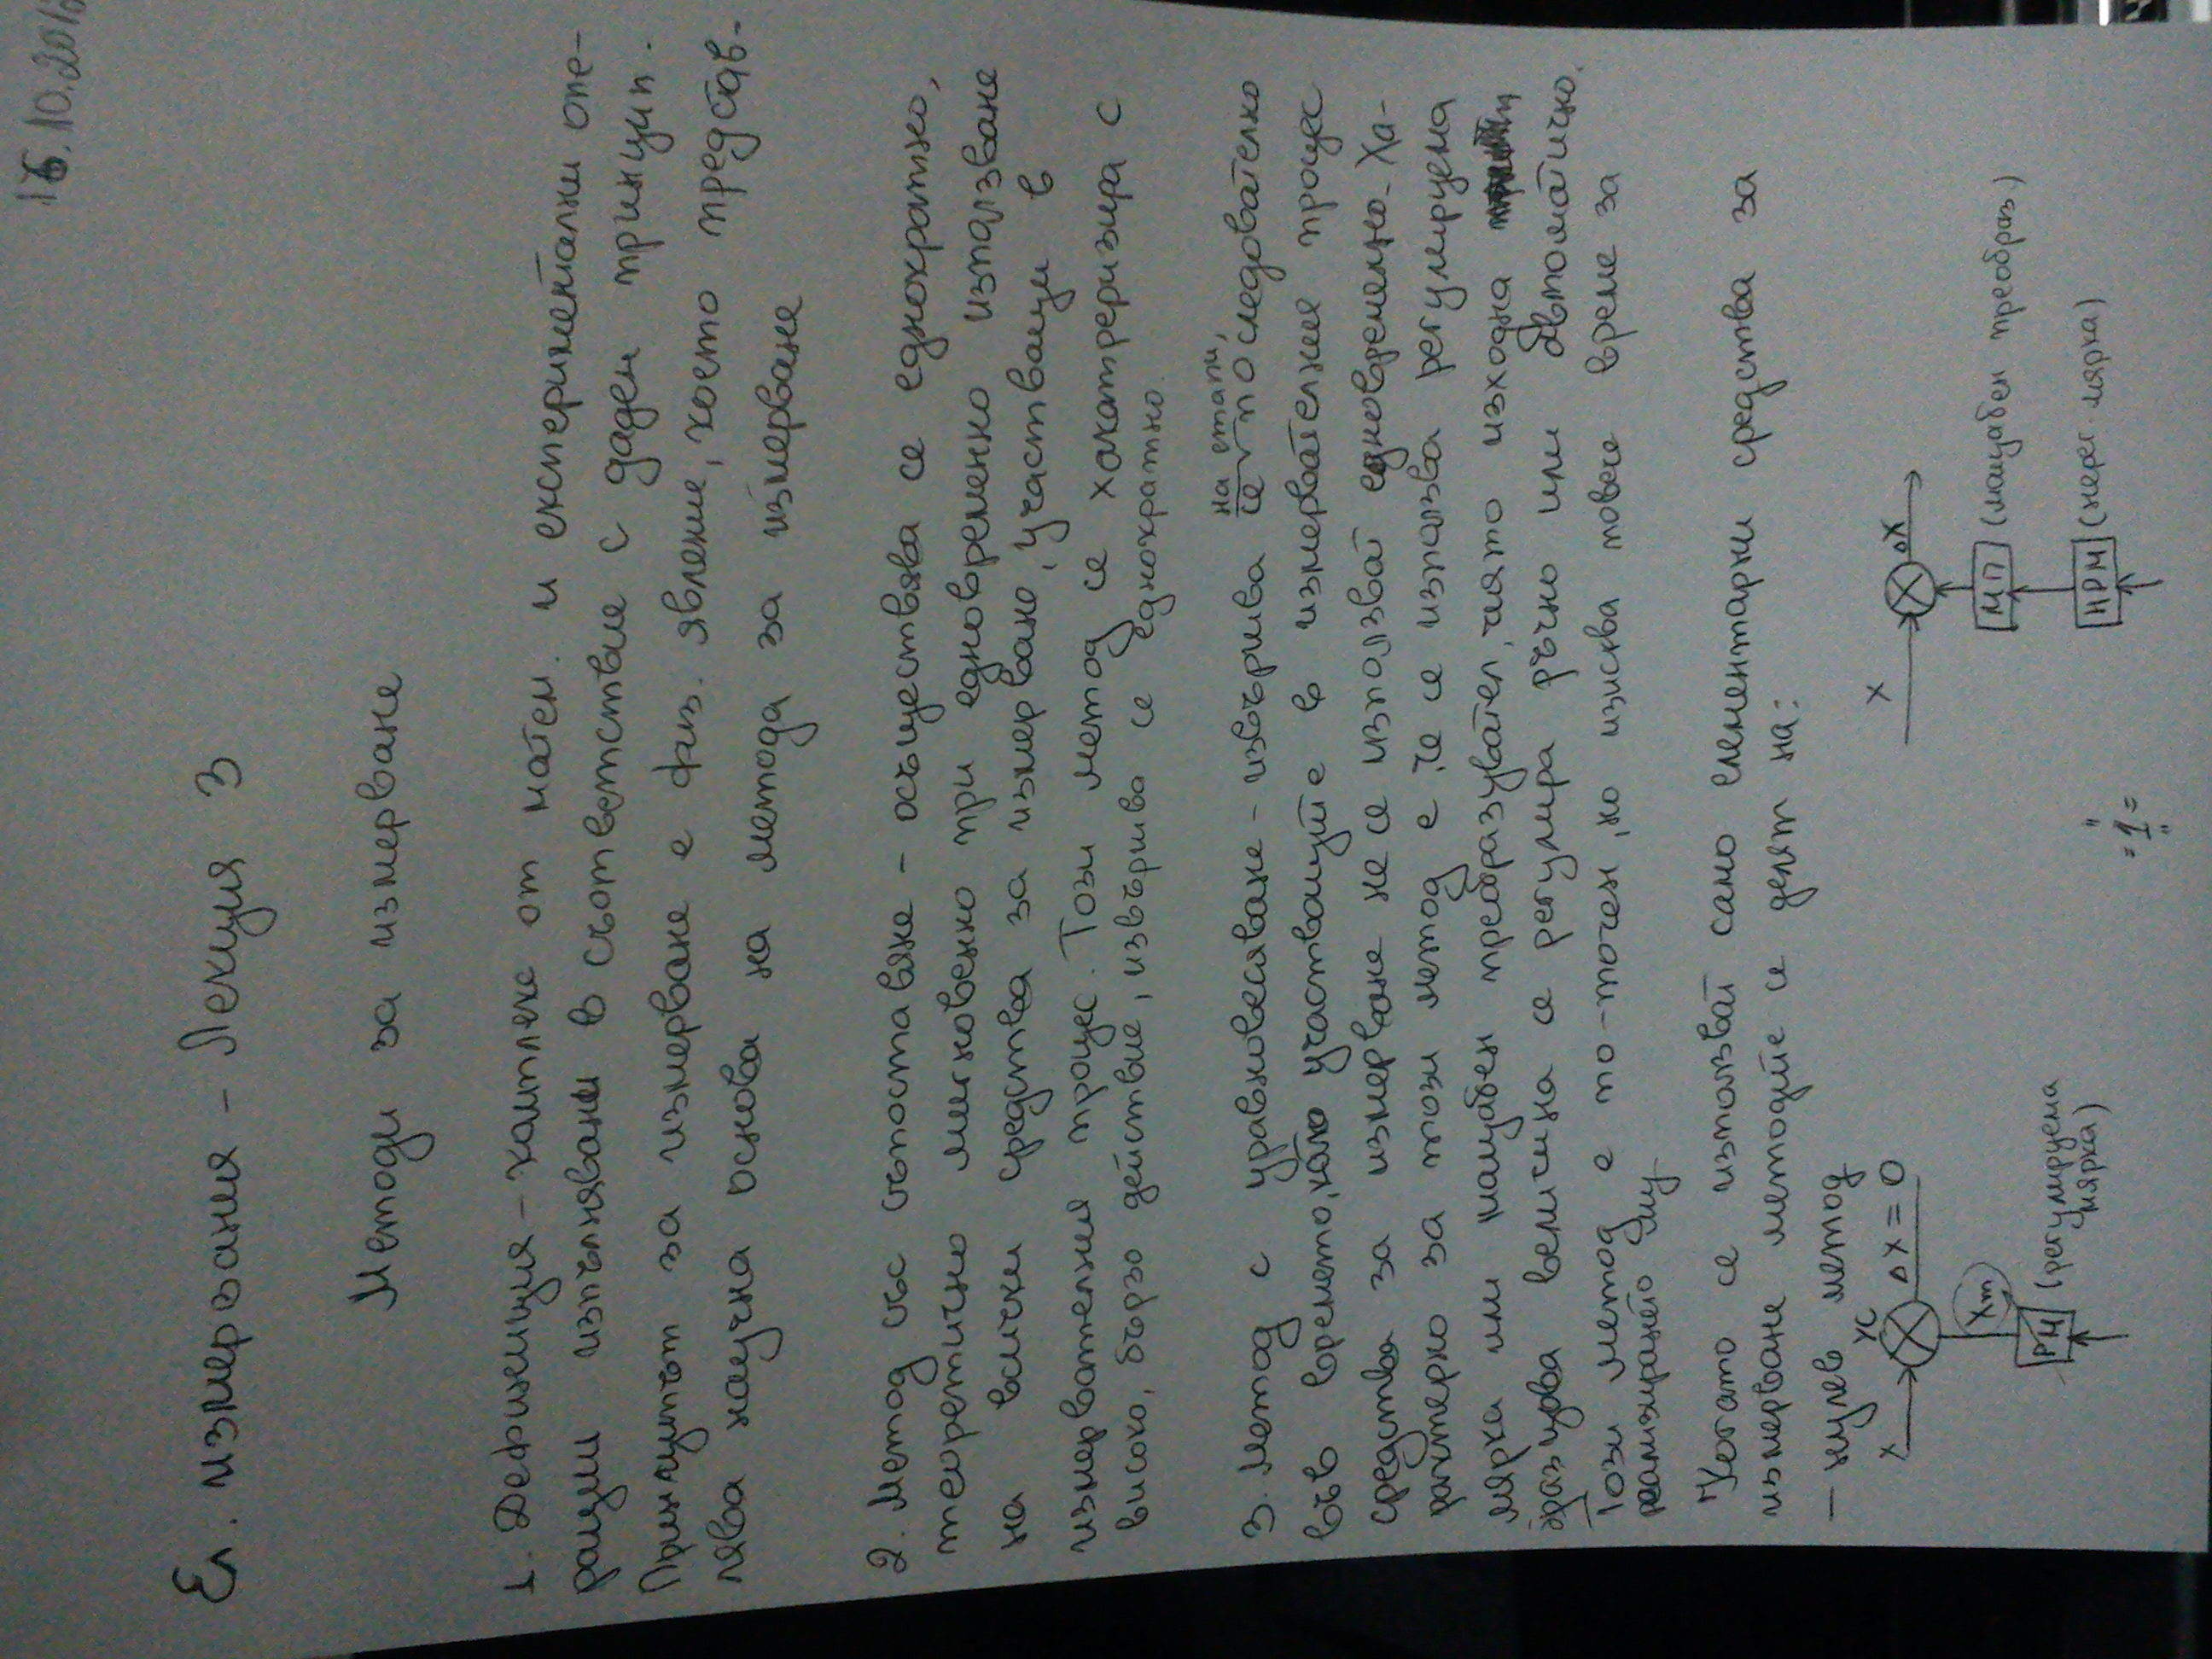 16.10.201
Ел. измервания - Лекция 3
Методи за измерване
1. Дефиниция - комплекс от матем. и експериментални опе-
рации изпълнявани в съответствие с даден принцип.
Принципът за измерване е физ. явление, което представ-
лява научна основа на метода за измерване
2. Метод със съпоставяне - осъществява се еднократно,
теоретично мигновенно при едновременно използване
на всички средства за измерване, участващи в
измервателния процес. Този метод се характеризира с
високо, бързо действие, извършва се еднократно.
на етапи,
3. Метод с уравновесяване - извършва се последователно
във времето, като участващите в измервателния процес
средства за измерване не се използват едновременно. Ха-
рактерно за този метод е, че се използва регулируема
мярка или мащабен преобразувател, чиято изходна
величина се регулира ръчно или автоматично.
Този метод е по-точен, но изисква повече време за
реализирането му
Когато се използват само елементарни средства за
измерване методите се делят на:
- нулев метод
x УС Δx = 0
Xm
РМ (регулируема
мярка)
x Δx
МП (мащабен преобраз.)
НРМ (нерег. мярка)
= "1" =